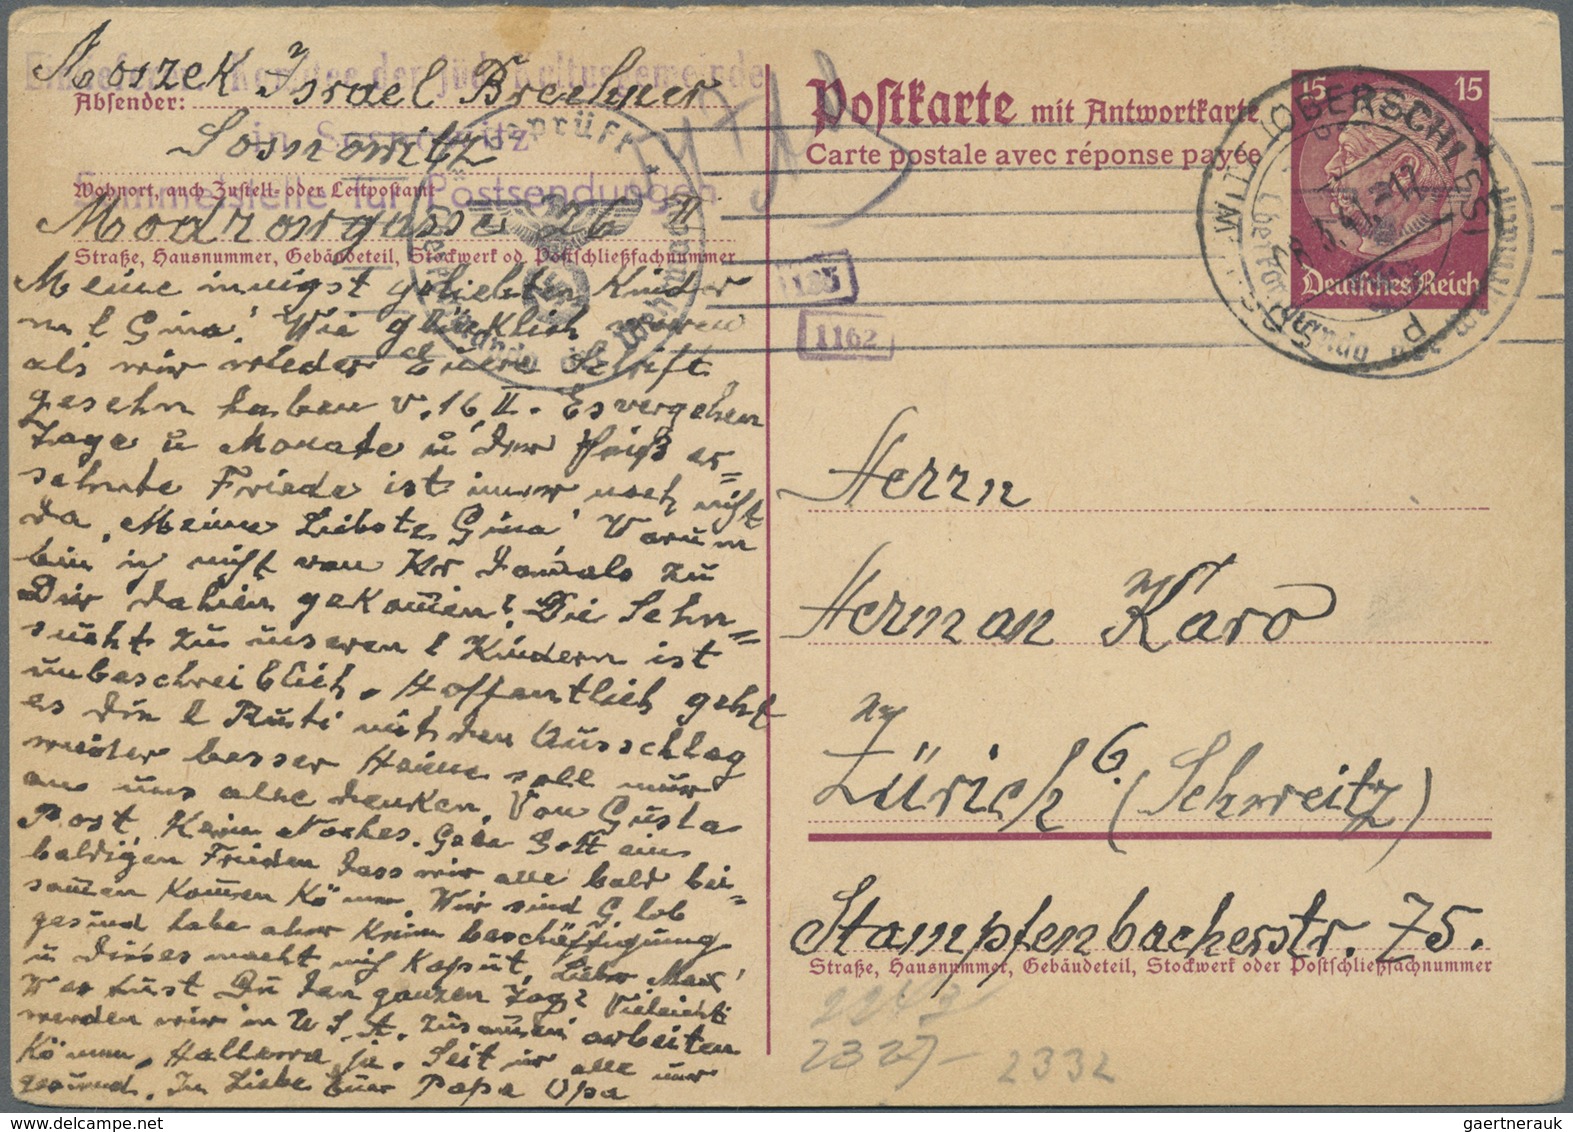 Moszek Israel Brechner
Absender:
Sosnowitz
in Sosnowitz
Wohnort, auch Zustell- oder Leitpostamt
Sammelstelle für Postsendungen
Modrowgasse 26
Straße, Hausnummer, Gebäudeteil, Stockwerk od. Postschließfachnummer
Meine innigst geliebten Kinder
u l Gina! Wie glücklich waren
als wir wieder Eure Schrift
gesehn haben v. 16 II. Es vergehen
Tage u Monate u der heiß er=
sehnte Friede ist immer noch nicht
da. Meine Liebste Gina! Warum
bin ich nicht vom damals zu
Dir dahin gekom̅en? Die Sehn=
sucht zu unseren l Kindern ist
unbeschreiblich. Hoffentlich geht
es die l Ruti mit den Ausschlag
wieder besser Heine soll nur
an uns alle denken. Von Gusta
Post. Kein Gebe Gott ein
baldigen Frieden dass wir alle bald bei=
sam̅en kom̅en Kön̅en. Wir sind G. lob
gesund habe aber Keine beschäffigung
u dieses macht mich Kaput. Lieber Max!
Was tust Du den ganzen Tag? Vieleicht
werden wir in U.S.A. zusam̅en arbeiten
Können. ja. Seit ir alle nur
gesund. In Liebe Euer Papa Opa
Postkarte mit Antwortkarte
Carte postale avec réponse payée
15 15
Deutsches Reich
(OBERSCHLES)
geprüft
1162
Herrn
Herman Karo
in
Zürich 6. (Schweitz)
Stampfenbacherstr. 75.
Straße, Hausnummer, Gebäudeteil, Stockwerk oder Postschließfachnummer
2327 - 2332
gaertnerauk